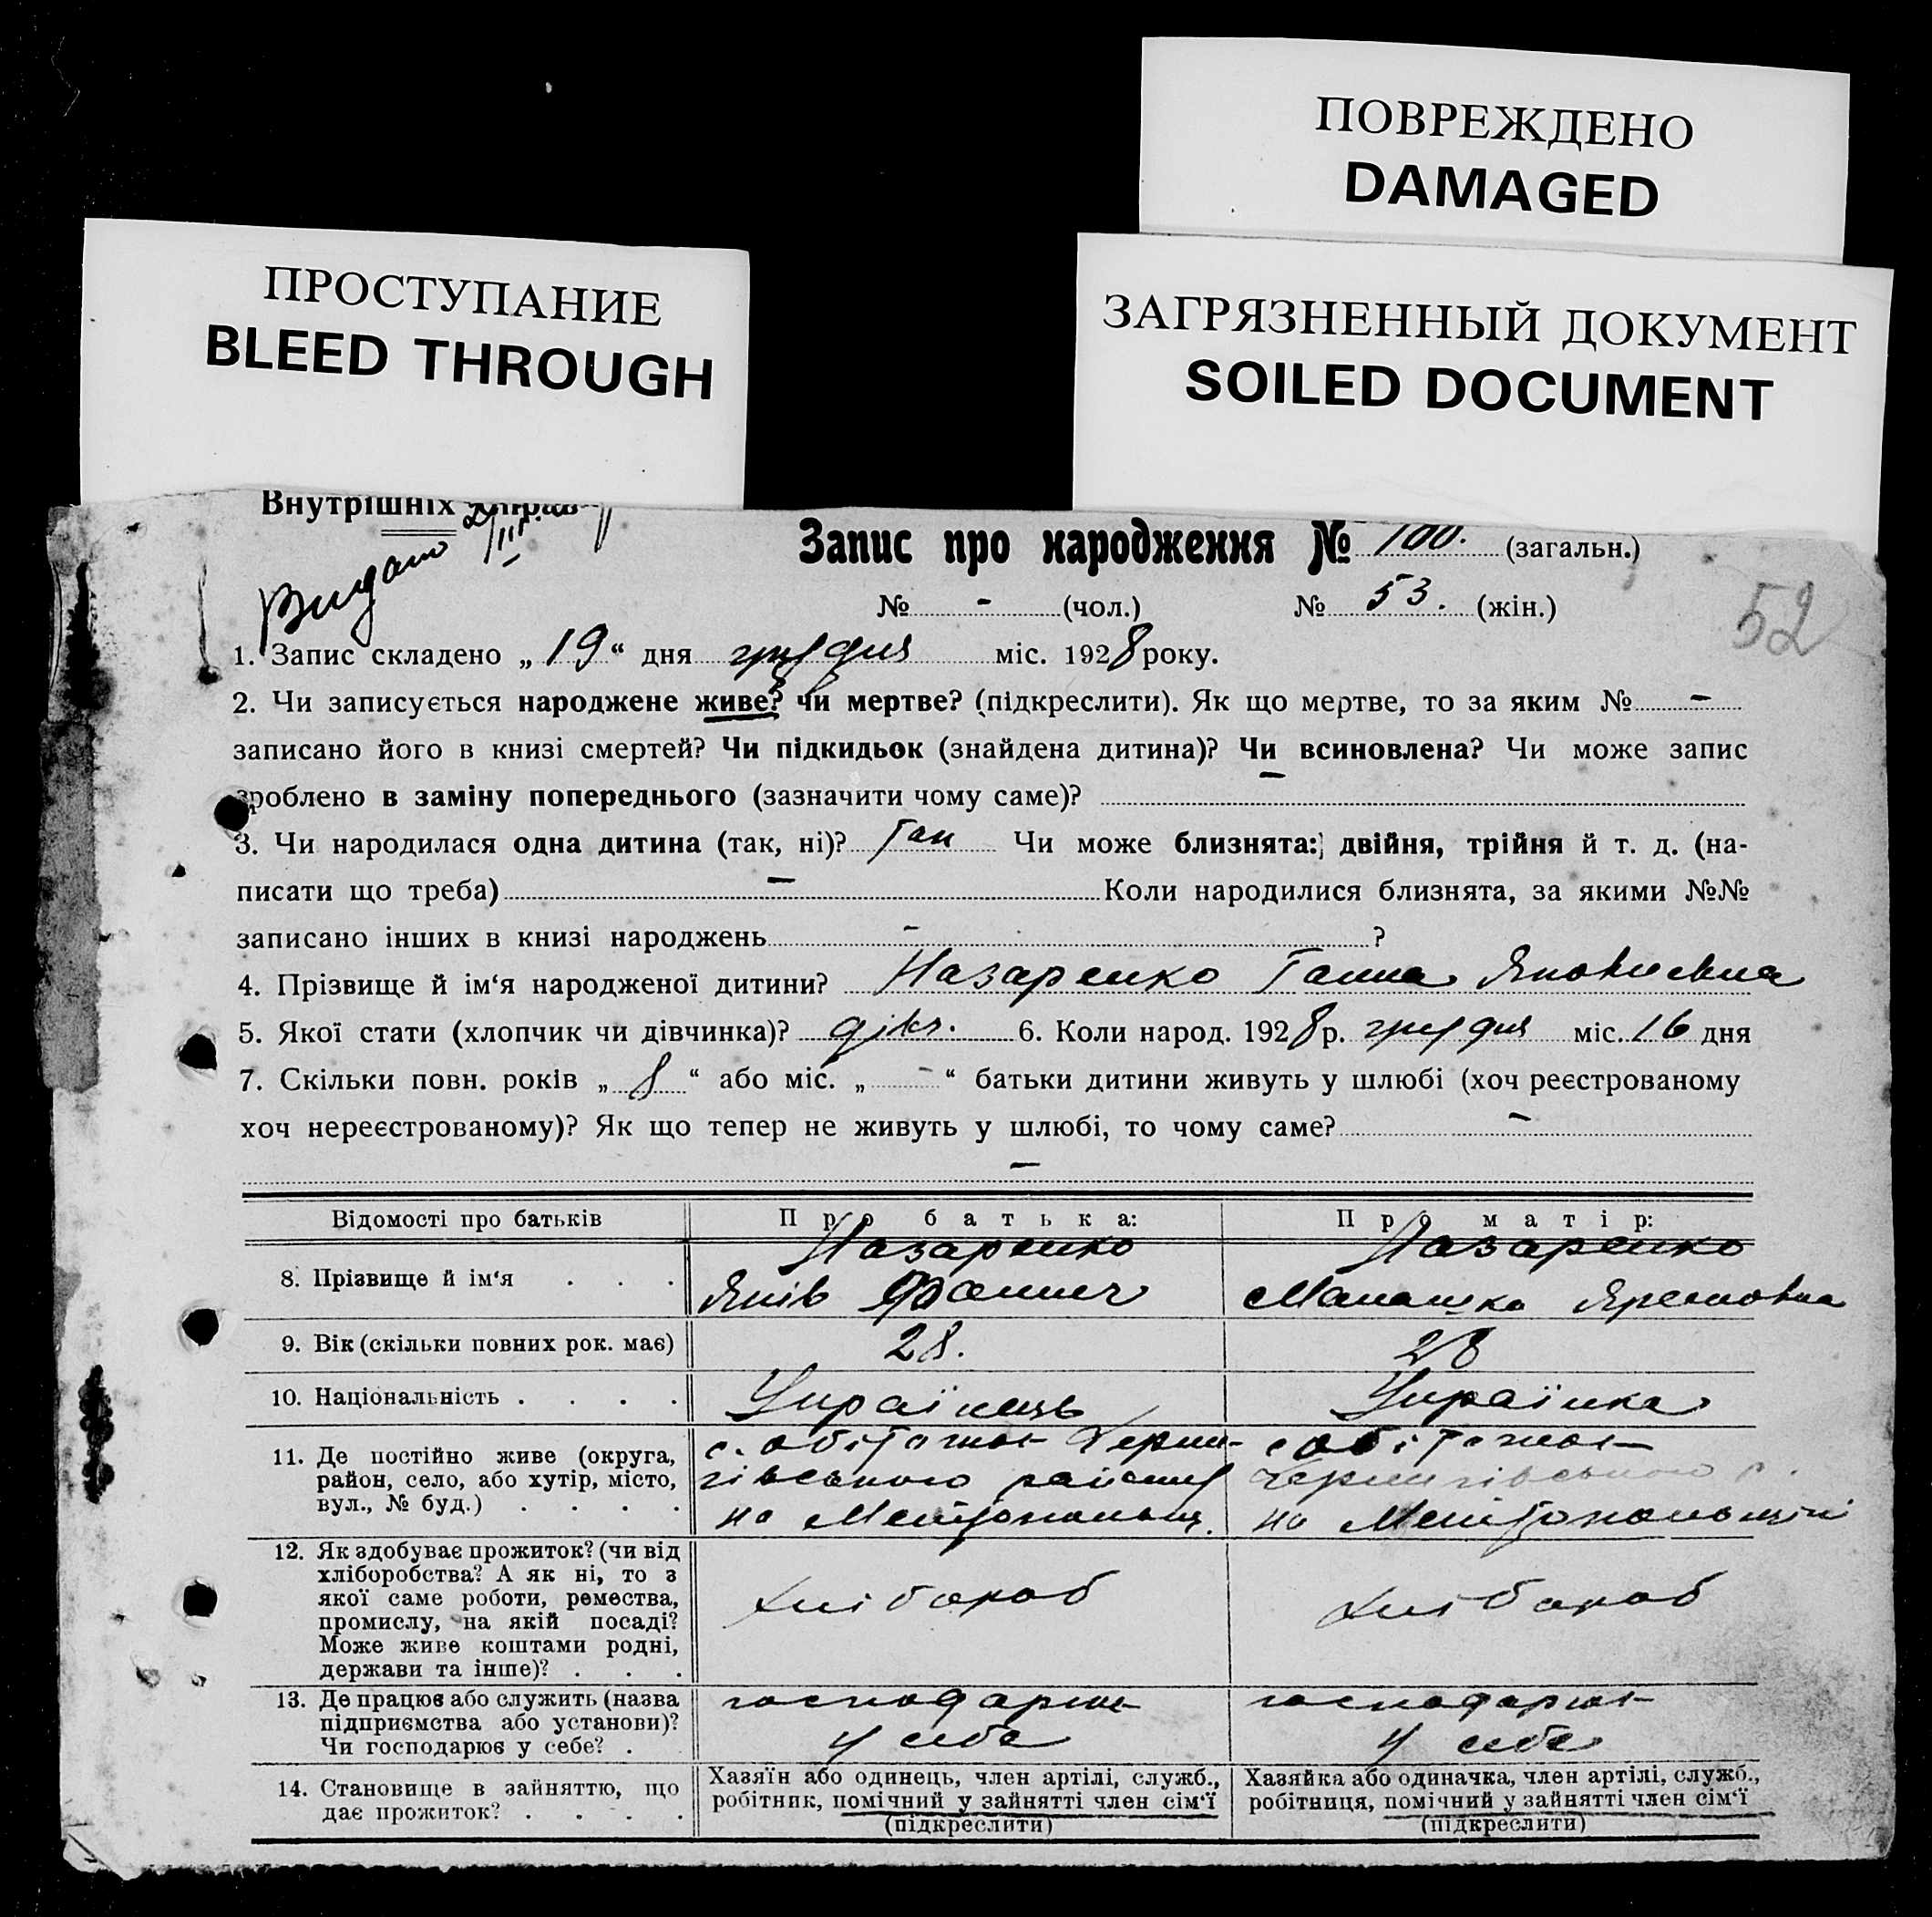 ПОВРЕЖДЕНО
DAMAGED
ПРОСТУПАНИЕ
BLEED THROUGH
ЗАГРЯЗНЕННЫЙ ДОКУМЕНТ
SOILED DOCUMENT
Внутрішніх Справ
Видано
Запис про народження № 100. (загальн.)
№ - (чол.) № 53. (жін.)
52
1. Запис складено „ 19 “ дня грудня міс. 1928 року.
2. Чи записується народжене живе? чи мертве? (підкреслити). Як що мертве, то за яким № -
записано його в книзі смертей? Чи підкидьок (знайдена дитина)? Чи всиновлена? Чи може запис
зроблено в заміну попереднього (зазначити чому саме)? -
3. Чи народилася одна дитина (так, ні)? Так Чи може близнята: двійня, трійня й т. д. (на-
писати що треба) - Коли народилися близнята, за якими №№
записано інших в книзі народжень - ?
4. Прізвище й ім‘я народженої дитини? Назаренко Ганна Яковлевна
5. Якої стати (хлопчик чи дівчинка)? дівч. 6. Коли народ. 1928 р. грудня міс. 16 дня
7. Скільки повн. років „ 8 “ або міс. „ - “ батьки дитини живуть у шлюбі (хоч реєстрованому
хоч нереєстрованому)? Як що тепер не живуть у шлюбі, то чому саме? -
-
Відомості про батьків Про батька: Про матір:
Назаренко Назаренко
8. Прізвище й ім‘я . . . Яків
9. Вік (скільки повних рок. має) 28. 28
10. Національність . . . . Українець Українка
11. Де постійно живе (округа,
район, село, або хутір, місто,
вул., № буд.) . . . .
с. Обіточне Черни-
гівського району
на Мелітопольщ.
с Обіточне
Чернигівського р.
на Мелітопольщині
12. Як здобуває прожиток? (чи від
хліборобства? А як ні, то з
якої саме роботи, ремества,
промислу, на якій посаді?
Може живе коштами родні,
держави та інше)? . . .
хлібороб хлібороб
13. Де працює або служить (назва
підприємства або установи)?
Чи господарює у себе? .
господарює
у себе
господарює
у себе
14. Становище в зайняттю, що
дає прожиток? . . . .
Хазяїн або одинець, член артілі, служб.,
робітник, помічний у зайнятті член сім‘ї
(підкреслити)
Хазяйка або одиначка, член артілі, служб.,
робітниця, помічний у зайнятті член сім‘ї
(підкреслити)